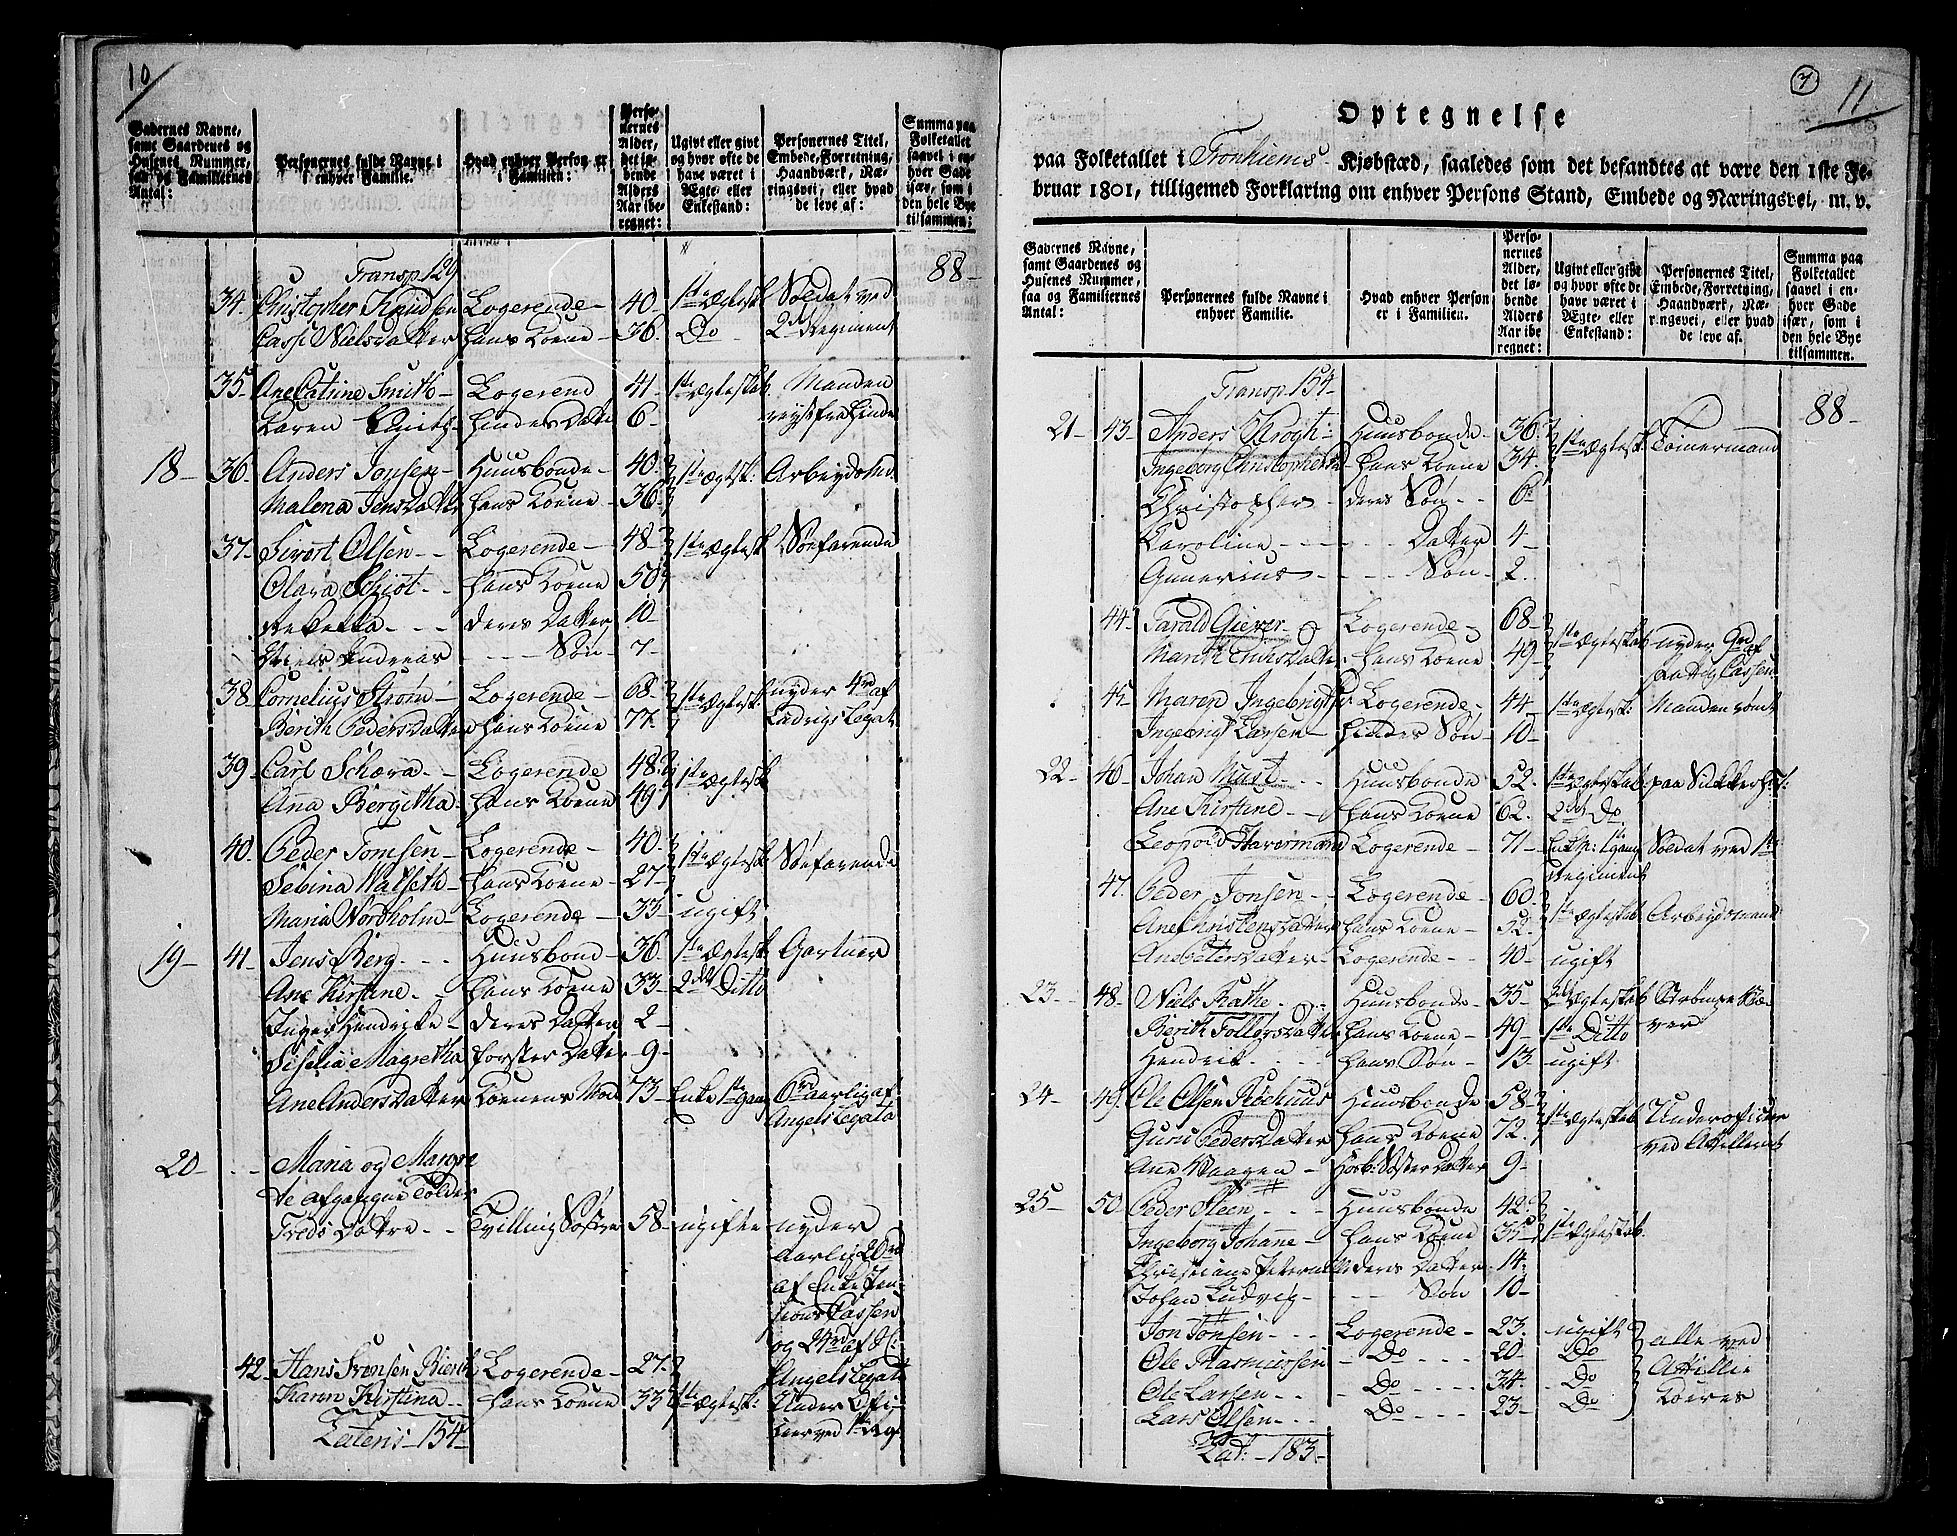 10
Gadernes Navne, samt Gaardenes og Husenes Nummer, saa og Familiernes Antal:
Personernes fulde Navne i enhver Familie.
Hvad enhver Person er i Familien:
Personernes Alder, det løbende Alders Aar iberegnet:
Ugivt eller givt og hvor ofte de have været i Ægte- eller Enkestand:
Personernes Titel, Embede, Forretning, Haandværk, Næringsvei, eller hvad de leve af:
Summa paa Folketallet saavel i enhver Gade især, som i den hele Bye tilsammen:
Transp. 129 88-
34. Christopher Knudsen Logerende- 40- 1ste Ægtesk. Soldat ved
Cassi Nielsdatter hans Koene- 36. Do 2det Regiment
35- Ane Catrine Smith- Logerend 41- 1ste Ægteskab Manden
Karen Smith- hindes Datter 6- reyst fra hinde
18- 36- Anders Jonsen- Huusbonde- 40. 1ste Ægtesk: Arbeydsmd.
Malena Jensdatter hans Koene- 36-
37- Sivert Olsen- - Logerende- 48- 1ste Ægtesk Søefarende
Clara Schiøt- - hans Koene 50
Rebekka- - - deres Datter 10-
Niels Andreas - - Søn- 7-
38- Cornelius Strøm- Logerende- 68- 1ste Ægtesk: nyder 4rd af
Berith Pedersdatter hans Koene 77. Ludrigs Legat
39- Carl Schæra- - Logerende 48. 1ste Ægtesk
Anna Bergitha- hans Koene 49
40. Peder Tomsen- Logerende- 40. 1ste Ægtesk Søefarende
Sebina Walseth- hans Koene- 27-
Maria Nordholm- Logerende- 33- ugift
19- 41- Jens Berg- - - Huusbond- 36- 1ste Ægtesk- Gartner
Ane Kirstine- - hans Koene 33- 2det Ditto
Inger Hendrikke- deres Datter 2-
Siselia Magretha forster Datter 9-
Ane Andersdatter Koenens Mod 73- Enke 1ste gang 6rd aarlig af
Angels Legato
20- - - Maria og Margre
te afgangne Tolder
Treds Døttre- - Tvilling Søstre 58- ugifte nyder
aarlig 20rd
af Enke Pen-
sions Cassen
og 24rd af H:
42- Hans Svensen Bierch Logerende- 27. Angels Legat
Karen Kirstina- - hans Koene 33 1ste Ægtesk: Under Offi-
Lateris- 154- cier ved 1ste Reg
7 11
Optegnelse
paa Folketallet i Tronhiems Kjøbstæd, saaledes som det befandtes at være den 1ste Fe-
bruar 1801, tilligemed Forklaring om enhver Persons Stand, Embede og Næringsvei, m. v.
Gadernes Navne, samt Gaardenes og Husenes Nummer, saa og Familiernes Antal:
Personernes fulde Navne i enhver Familie.
Hvad enhver Person er i Familien.
Personernes Alder, det løbende Alders Aar iberegnet:
Ugivt eller givt og hvor ofte de have været i Ægte- eller Enkestand:
Personernes Titel, Embede, Forretning, Haandværk, Næringsvei, eller hvad de leve af.
Summa paa Folketallet saavel i enhver Gade især, som i den hele Bye tilsammen.
Transp. 154- 88-
21- 43- Anders Krogh- Huusbonde- 36. 1ste Ægtesk. Tømermand
Ingeborg Christophersd hans Koene 34-
Christopher - deres Søn- - 6-
Karoline- - - - Datter 4-
Gunerius- - - - Søn- 2.
44- Tarald Giever- - Logerende- 68- 1ste Ægteskab nyder Gnd. af
hans Koene 49- Fattig Cassen
45- Maren Ingebrigts Logerende- 44- 1ste Ægtesk: Manden rømt
Ingebrigt Larsen- hindes Søn- 10-
22- 46- Johan Must- - - Huusbonde 52. 1ste Ægteskab: paa Sukkerh:
Ane Kirstine- hans Koene 62. 2det Do
Leopold Havermand Logerende- 71- Enkm: 1 gang Soldat ved 1ste
Regiment
47. Peder Jonsen- - Logerende- 60. 1ste Ægteskab Arbeydsmand
Ane Christensdatter hans Koene- 52.
Ane Petersdatter- Logerende- - 40- ugift
23- - 48- Niels Rathe- - Huusbonde- 35- Ægteskab Strømpe Væ-
Berith Follersdatter hans Koene- 49- 1ste Ditto ver
Hendrik- - - - hans Søn- 13- ugift
24- 49. Ole Olsen Røehuus Huusbonde 58- 1ste Ægteskab Underofficier
Guru Pedersdatter hans Koene 72. ved Atilleriet
Ane Waagen- Søster Datter 9-
25- 50- Peder Steen- - - Huusbonde 42. 1ste Ægteskab.
Ingeborg Johane- hans Koene 35-
Christiane Peternelle deres Datter- 14-
Johan Ludvig- - - Søn 10-
Jon Jonsen- - - Logerende- 23. ugift alle ved
Ole Rasmussen - Do - - - 20- Do Atillie
Ole Larsen- - - Do - - - - 34- Do Koeres
Lars Olsen- - - Do - - - - 23- Do
Lat: - 183-